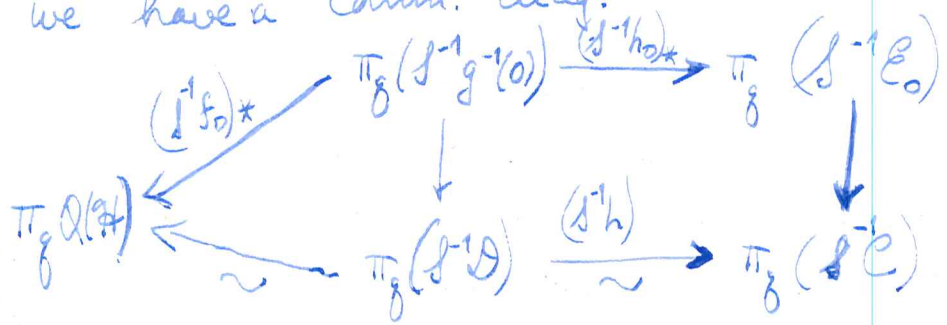 we have a comm. diag.
π_q(S^{-1}g^{-1}(0)) (S^{-1}h_0)_* π_q(S^{-1}E_0)
(S^{-1}f_0)_*
π_q Q(H) ~ π_q(S^{-1}D) (S^{-1}h) ~ π_q(S^{-1}C)